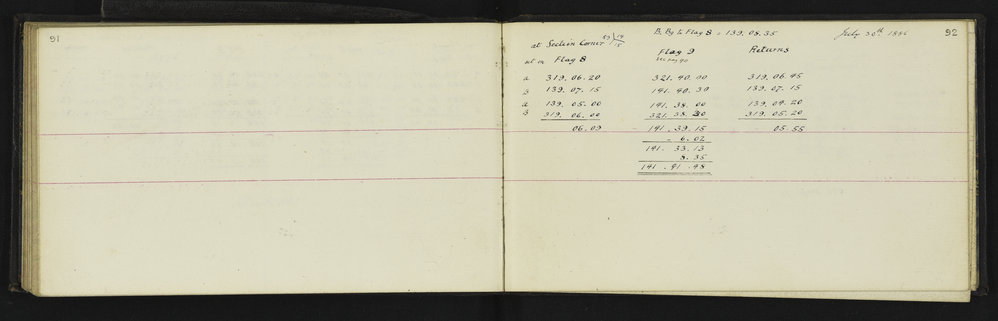 91
92
B. Bg to Flag 8 = 139. 08. 35
July 30th 1886
at Section Corner 14/15
Flag 9
Returns
set on Flag 8
see pag 90
a 319. 06. 20 321. 40. 00 319. 06. 45
B 139. 07. 15 141. 40. 30 139. 07. 15
a 139. 05. 00 141. 38. 00 139. 04. 20
B 319. 06. 00 321. 38. 30 319. 05. 20
06. 09 141. 39. 15 05. 55
- 6. 02
141. 33. 13
8. 35
141. 41. 48